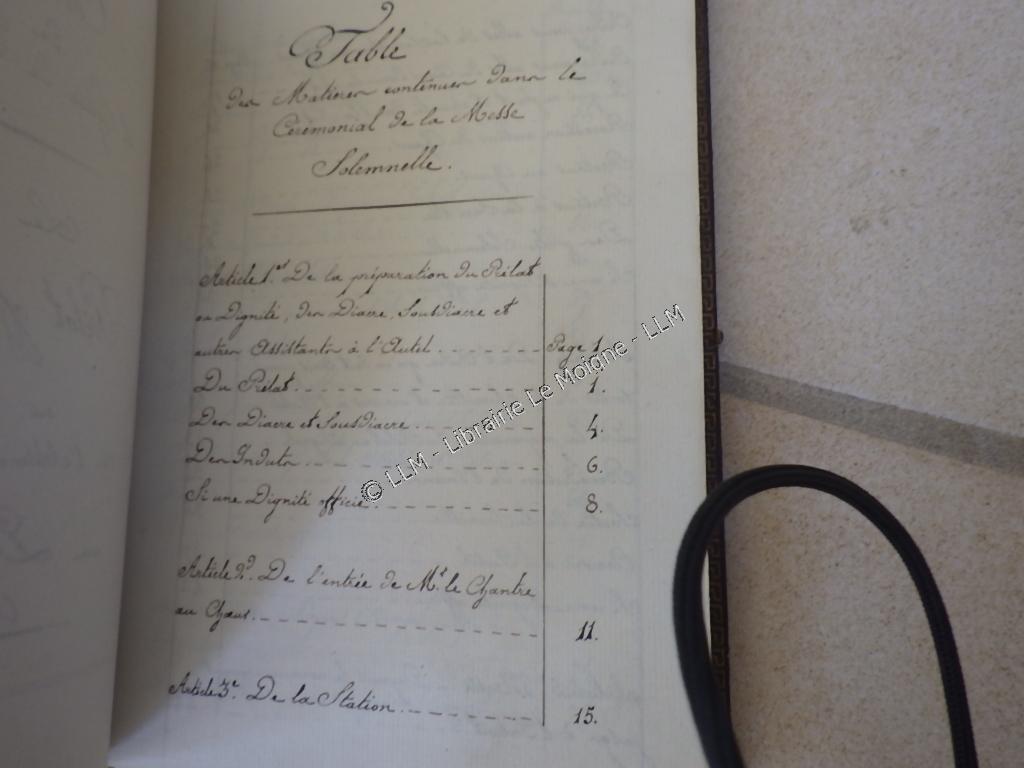 Table
des Matieres contenues dans le
Cérémonial de la Messe
Solemnelle.
Article 1.er De la préparation du Prélat
ou Dignité, des Diacre, Sousdiacre et
autres Assistants à l'Autel. - - - - - - Page 1.
Du Prélat. - - - - - - - - - - - - 1.
Des Diacre et Sousdiacre. - - - - - - - 4.
Des Induts. - - - - - - - - - - - - 6.
Si une Dignité officie. - - - - - - - - - 8.
Article 2.d De l'entrée de Mr. le Chantre
au Chœur. - - - - - - - - - - - - - 11.
Article 3.e De la Station. - - - - - - - 15.
© LLM - Librairie Le Moigne - LLM